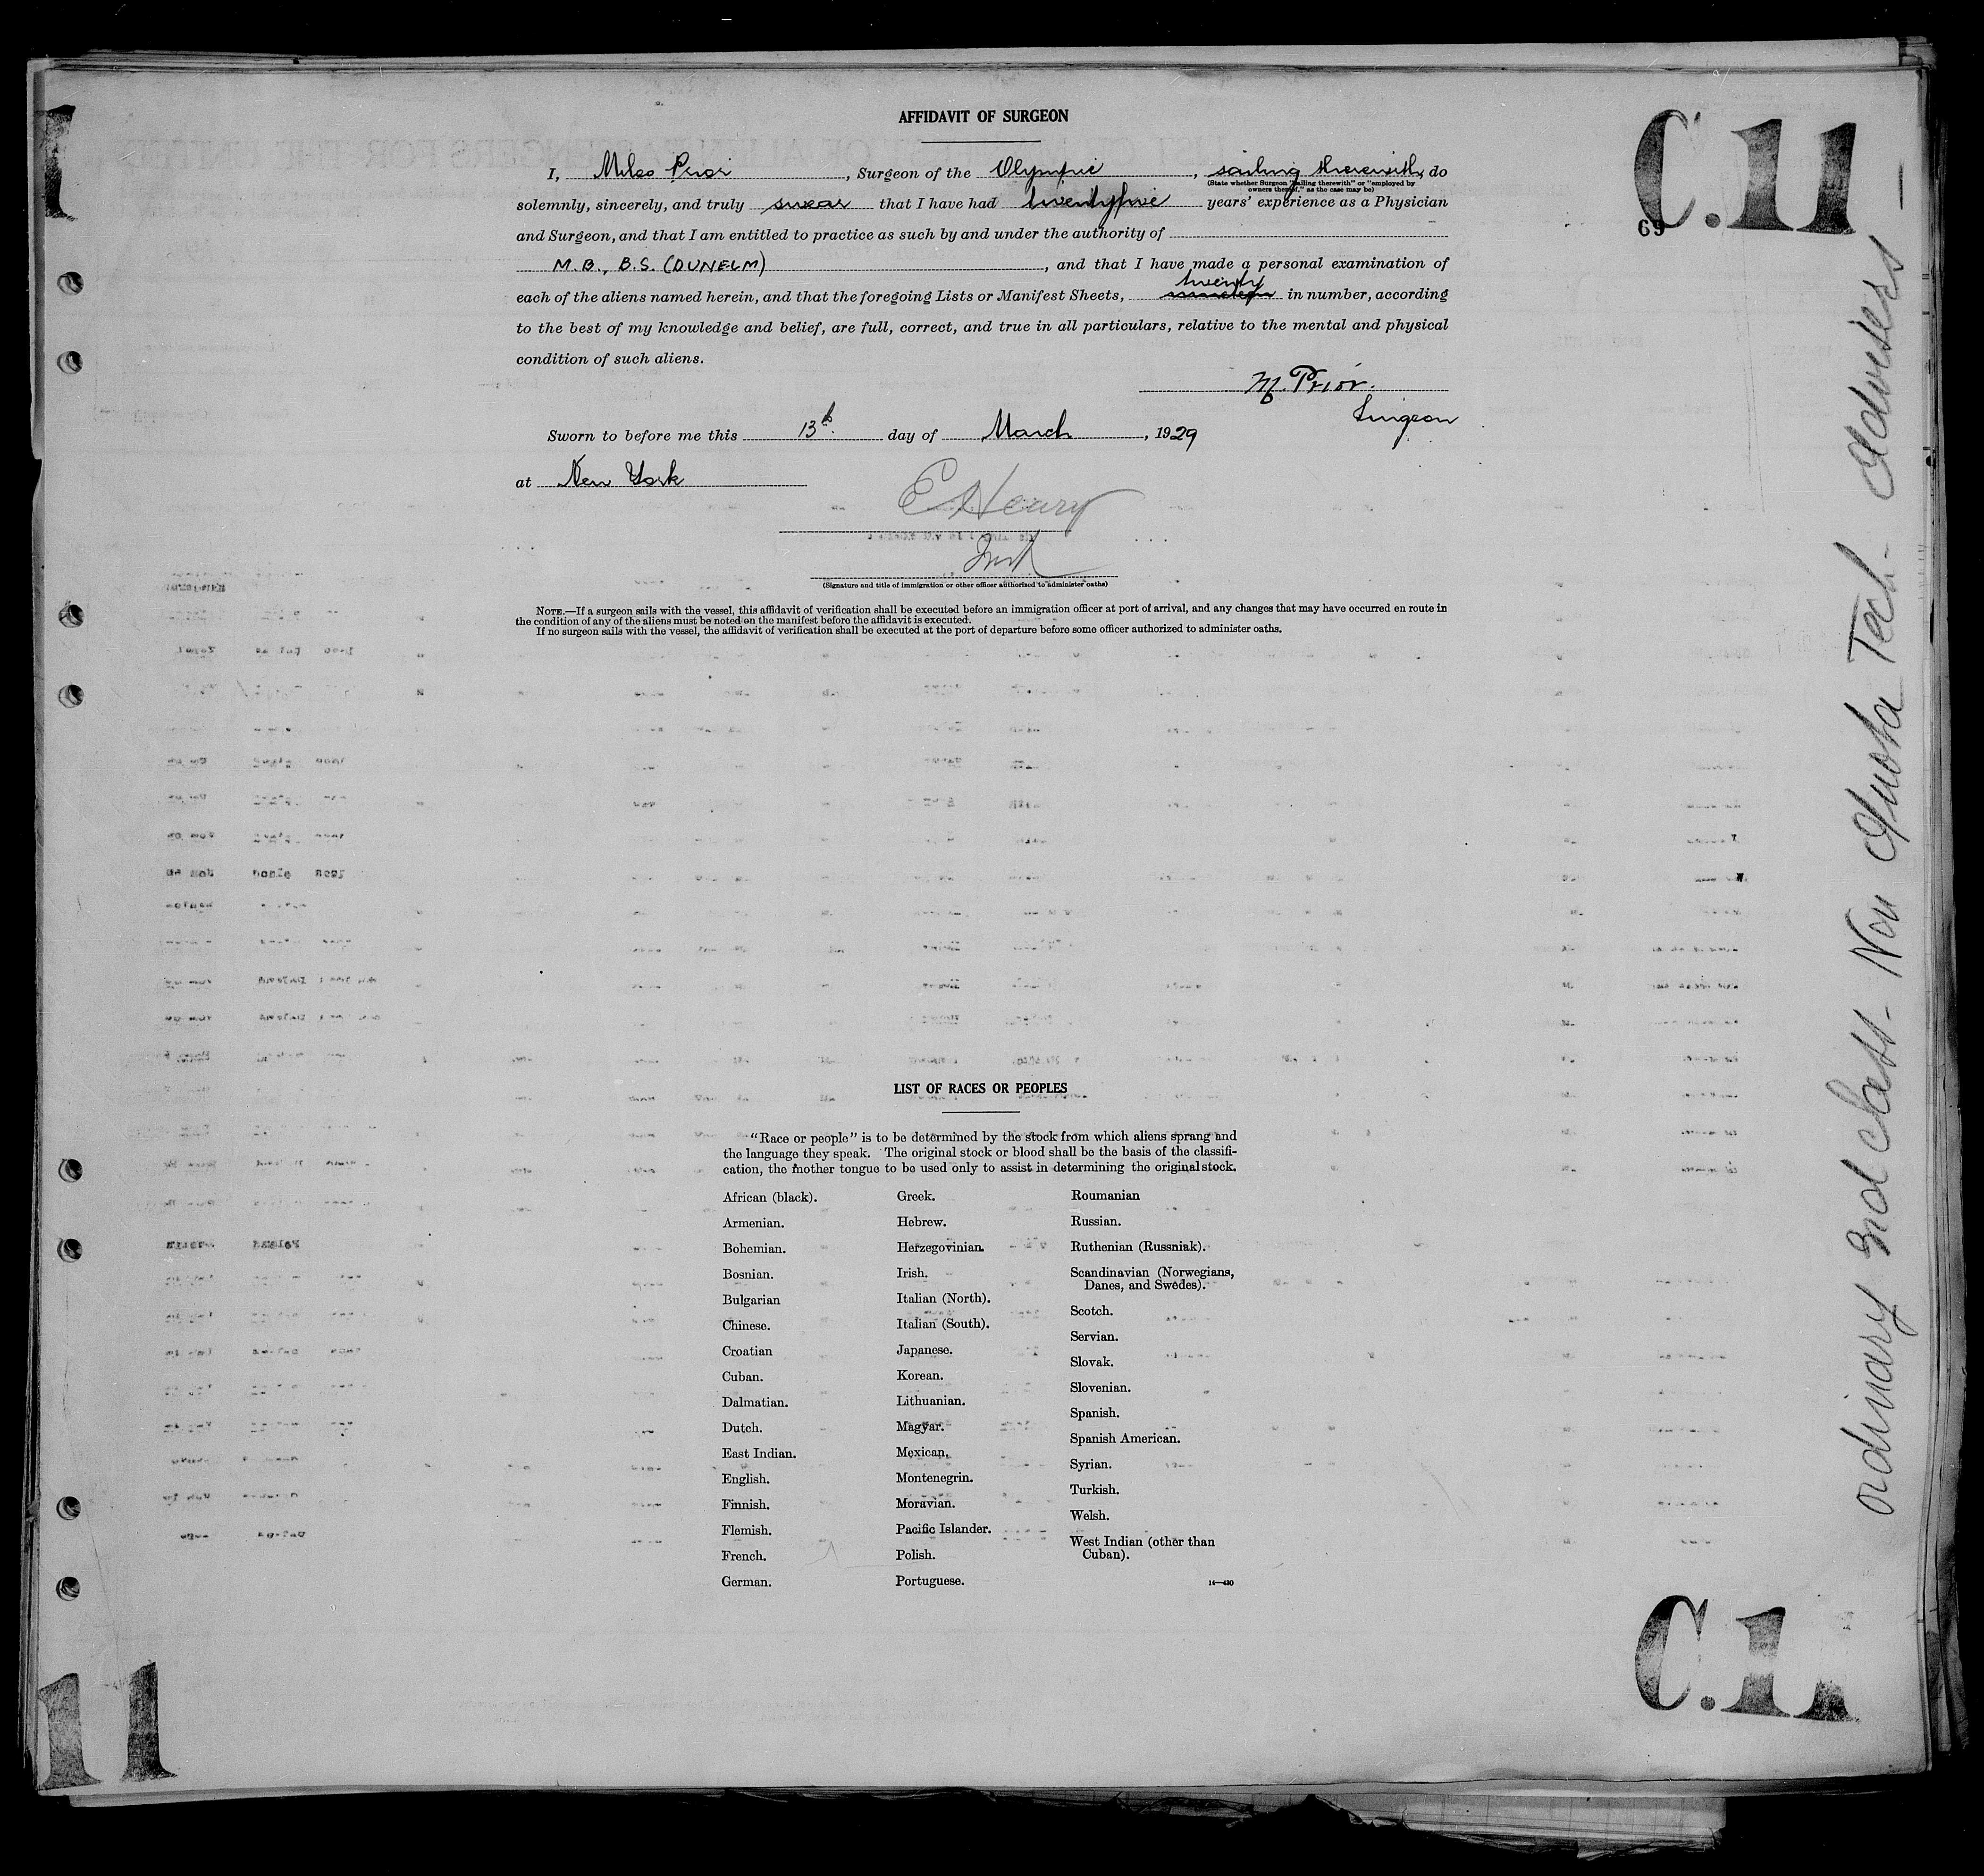 AFFIDAVIT OF SURGEON
C.11
I, Miles Prior, Surgeon of the Olympic, sailing therewith, do
(State whether Surgeon "sailing therewith" or "employed by
owners thereof," as the case may be)
solemnly, sincerely, and truly swear that I have had twentyfive years' experience as a Physician
69
and Surgeon, and that I am entitled to practice as such by and under the authority of
M.B., B.S. (DUNELM), and that I have made a personal examination of
twenty
each of the aliens named herein, and that the foregoing Lists or Manifest Sheets, nineteen in number, according
to the best of my knowledge and belief, are full, correct, and true in all particulars, relative to the mental and physical
condition of such aliens.
M. Prior.
Surgeon
Sworn to before me this 13th. day of March, 1929
at New York
E Henry
(Signature and title of immigration or other officer authorized to administer oaths)
NOTE.—If a surgeon sails with the vessel, this affidavit of verification shall be executed before an immigration officer at port of arrival, and any changes that may have occurred en route in
the condition of any of the aliens must be noted on the manifest before the affidavit is executed.
If no surgeon sails with the vessel, the affidavit of verification shall be executed at the port of departure before some officer authorized to administer oaths.
LIST OF RACES OR PEOPLES
"Race or people" is to be determined by the stock from which aliens sprang and
the language they speak. The original stock or blood shall be the basis of the classifi-
cation, the mother tongue to be used only to assist in determining the original stock.
African (black).
Armenian.
Bohemian.
Bosnian.
Bulgarian
Chinese.
Croatian
Cuban.
Dalmatian.
Dutch.
East Indian.
English.
Finnish.
Flemish.
French.
German.
Greek.
Hebrew.
Herzegovinian.
Irish.
Italian (North).
Italian (South).
Japanese.
Korean.
Lithuanian.
Magyar.
Mexican.
Montenegrin.
Moravian.
Pacific Islander.
Polish.
Portuguese.
Roumanian
Russian.
Ruthenian (Russniak).
Scandinavian (Norwegians,
Danes, and Swedes).
Scotch.
Servian.
Slovak.
Slovenian.
Spanish.
Spanish American.
Syrian.
Turkish.
Welsh.
West Indian (other than
Cuban).
14—430
ordinary 3rd class - Non Quota Tech. Advisers
11
C.11